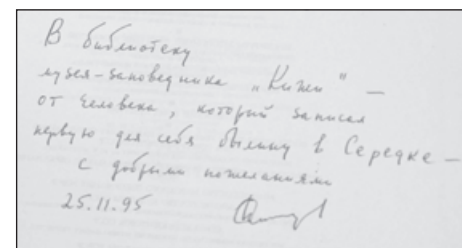 В библиотеку
музея-заповедника „Кижи" –
от человека, который записал
первую для себя былину в Середке –
с добрыми пожеланиями
25.11.95